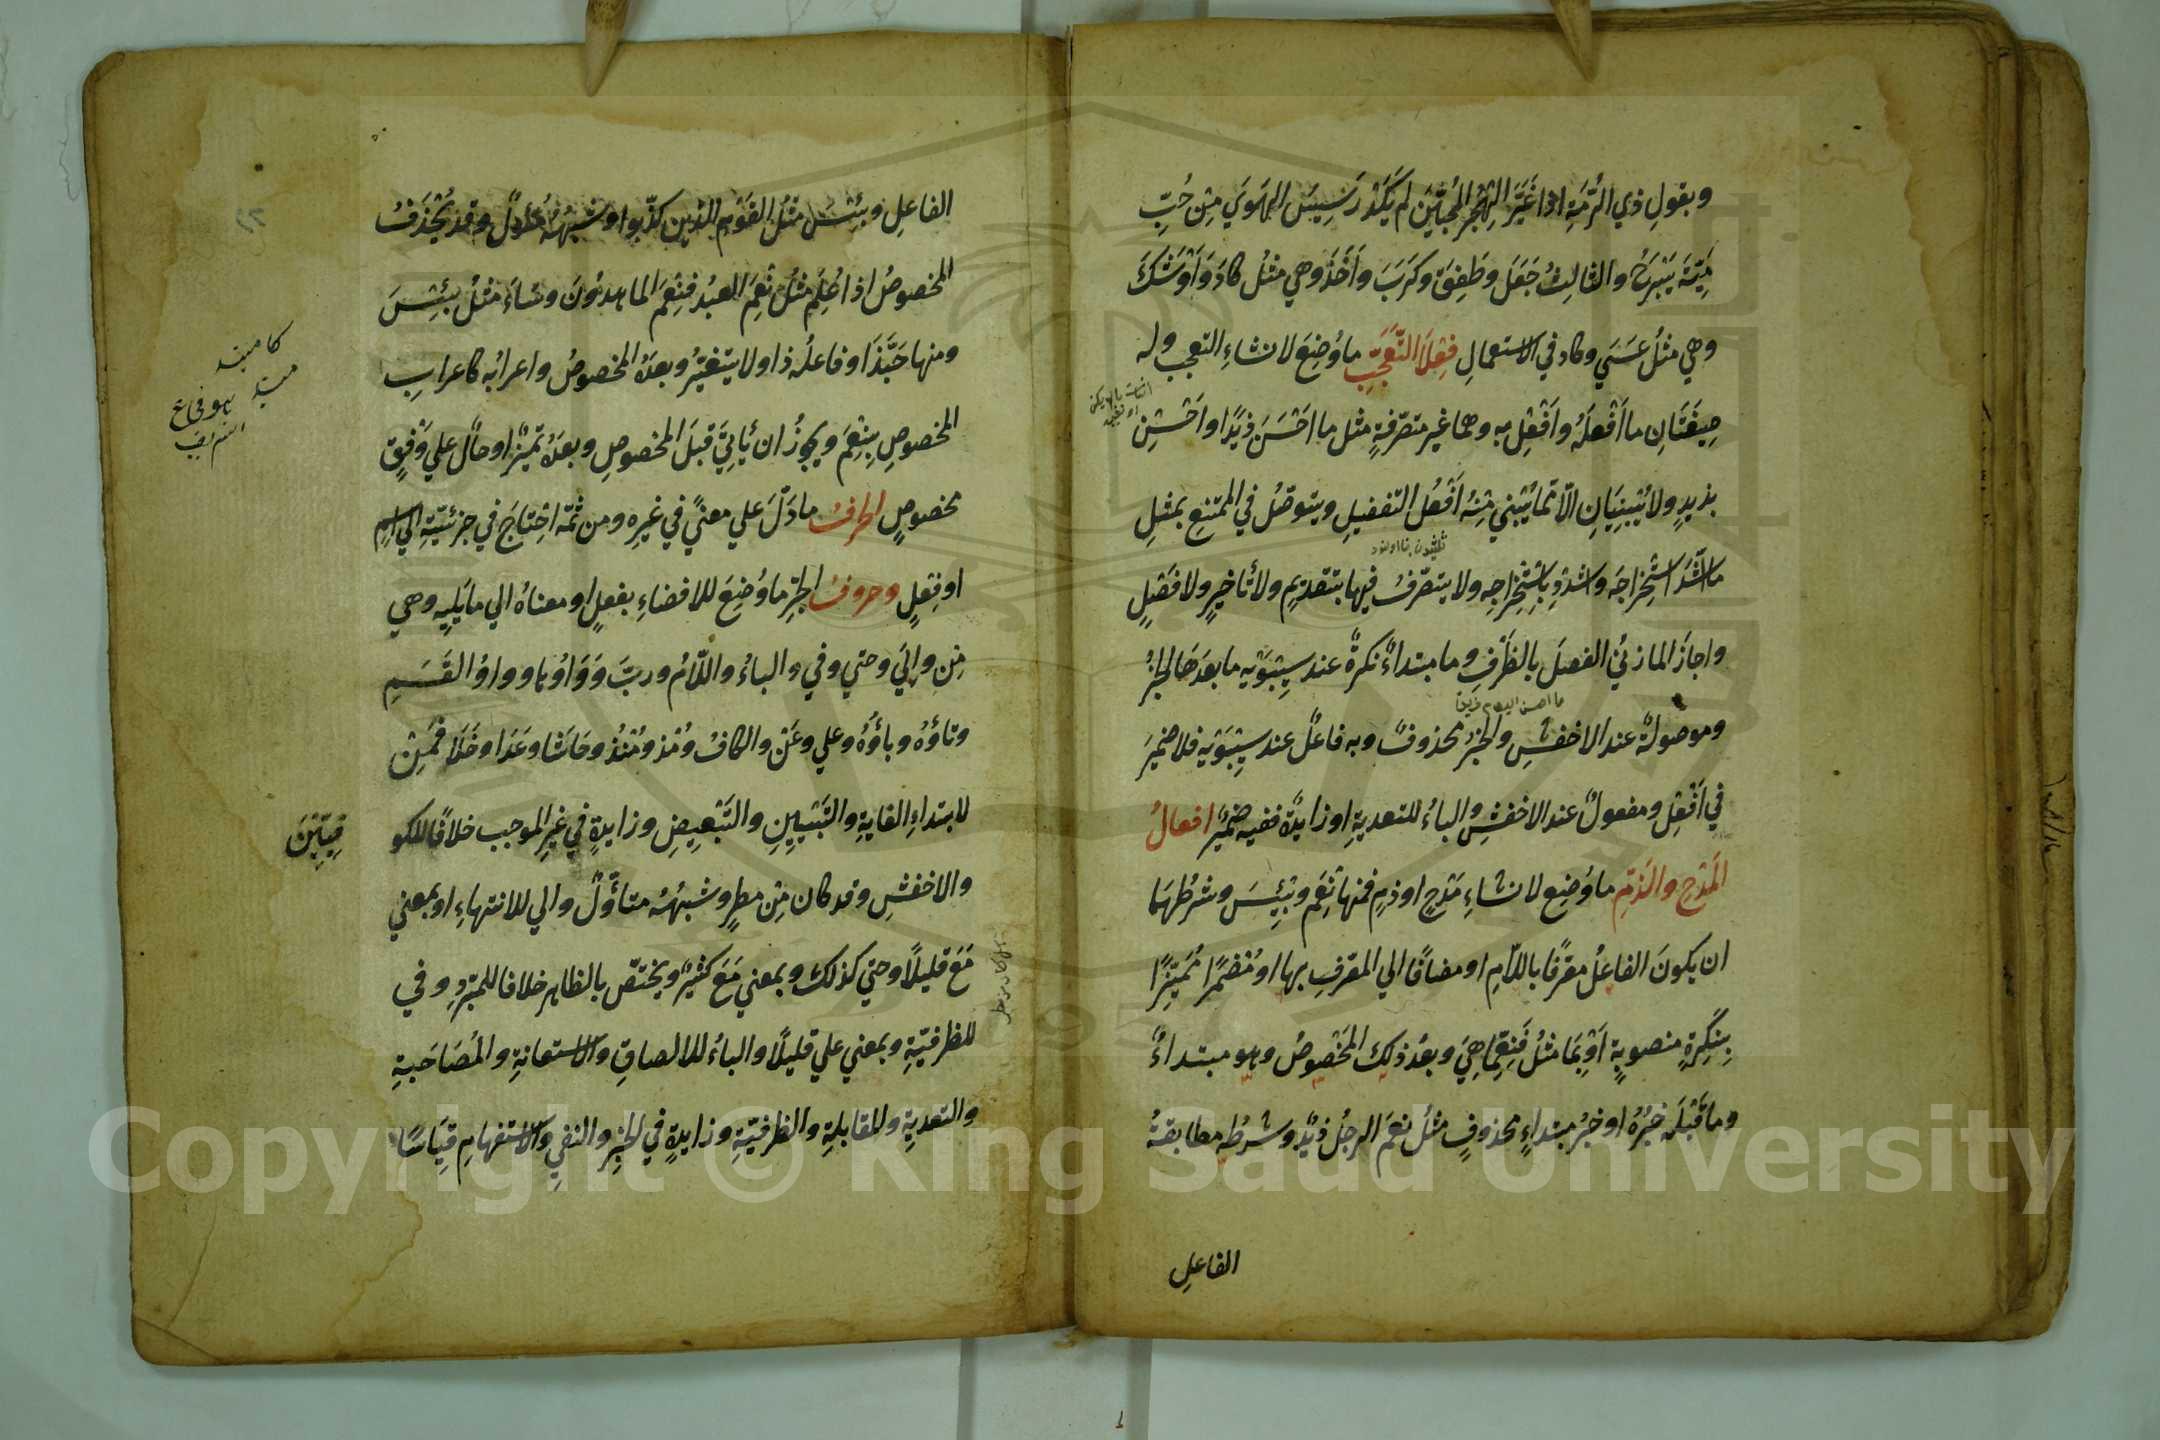 وبقولِ ذي الرُّمَّةِ اذا غَيَّرَ الهَجْرُ المُحِبِّيْنَ لم يَكَدْ رَسِيْسُ الهَوَي مِنْ حُبِّ
مَيَّةَ يَبْرَحُ والثالِثُ جَعَلَ وطَفِقَ وكَرَبَ وأَخَذَ وهي مثلُ كادَ وَأَوْشَكَ
وهي مثلُ عَسَي وكاد في الاستعمالِ فِعْلَا التَّعَجُّبِ ماوُضِعَ لانشاءِ التعجب وله
صِيغَتَانِ ما أَفْعَلَهُ وأَفْعِلْ به وهما غير متصرّفةٍ مثل ما احَسَنَ زيدًا او احَسِنْ
بزيدٍ ولا يُبْنِيَانِ الّا مما يُبْنِي مِنْهُ أَفْعُلُ التفضيلِ ويتوصّلُ في الممتنع بمثلِ
ما اشَدَّ اسْتِخْرَاجَه واشدُدْ بِاسْتِخْرَاجِه ولا يتصرّفُ فيها بتقديمٍ ولا تأخيرٍ ولا فَصْلٍ
واجازَ المازنيُّ الفصلَ بالظَرْفِ وما مبتداءٌ نكرةٌ عند سِيْبَوَيْه ما بعدَهَا الخبرُ
ما احسن اليوم زيدا
وموصولةٌ عند الاخفشِ والخبرُ محذوفٌ وبه فاعلٌ عند سِيْبَوَيْه فلا ضميرَ
في أَفْعِلْ ومفعولٌ عند الاخفشِ والباءُ للتعديةِ او زايدةٌ ففيه ضميرٌ افعالُ
المَدْحِ والذَمِّ ماوُضِع لانشاءِ مَدْحٍ او ذمٍ فمنها نِعْمَ وبِئْسَ وشرطُهَما
ان يكونَ الفاعلُ معرّفًا باللّامِ او مضافًا الي المعرّفِ بها او مُضْمَرًا مُمَيَّزًا
بِنَكِرَةٍ منصوبةٍ أَوْ بِمَا مثلُ فَنِعِمَّا هِيَ وبعدَ ذلِكَ المَخْصُوصُ وهو مبتداءٌ
وما قَبْلَه خَبَرُهُ او خبرُ مبتداءٍ محذوفٍ مثلُ نِعْمَ الرجلُ زيْدٌ وشرطُه مطابقةُ
الفاعلِ
الفاعلِ وبِئْسَ مثلُ القَوْمِ الذين كذّبوا وشبهُهُ متأوّلٌ وقد يُحْذَفُ
المخصوصُ اذا عُلِمَ مثلُ نِعْمَ العبدُ فنِعْمَ الماهدونَ وساءَ مثلُ بِئْسَ
ومنها حَبَّذَا وفاعلُه ذا ولا يتغيّرُ وبعدَهُ المخصوصُ واعرابُه كاعرابِ
المخصوصِ بِنِعْمَ ويجوزُ ان يأتيَ قبلَ المخصوصِ وبعدَهُ تميزٌ او حالٌ علي وَفْقِ
مخصوصٍ الحرفُ مادَلَّ علي معنًي في غيرِه ومن ثَمّه احْتاجَ في جزئيّتِه الي اسْمٍ
او فِعْلٍ وحروفُ الجَرِّ ماوُضِعَ للافضاءِ بفعلٍ او معناهُ الي ما يَلِيه وهي
مِن وإلي وحتي وفي والباءُ واللّامُ وربَّ وَوَاوُها وواوُ القَسَمِ
وتاؤُهُ وباؤُهُ وعلي وعَنْ والكافُ ومُذْ ومُنْذُ وحَاشَا وعَدَا وخَلَا فمِنْ
للابتداءِ الغايةِ والتَبْيِيْنِ والتَبْعِيضِ وزايدةٍ في غيرِ الموجب خلافًا للكو
فِيِّيْنَ
والاخفشِ وقد كان مِنْ مطرٍ وشبهُهُ متأوّلٌ والي للانتهاءِ او بمعني
مَعَ قليلًا وحتي كذلكَ وبمعني مَعَ كثيرٌ ويختصّ بالظاهر خلافا للمبرّدِ وفي
للظرفيّةِ وبمعني علي قليلًا والباءُ للالصاقِ والاستعانةِ والمُصَاحَبةِ
والتعديةِ والمقابلةِ والظرفيّةِ وزايدةٍ في الخبرِ والنفي والاستفهامِ قِيَاسًا
Copyright © King Saud University